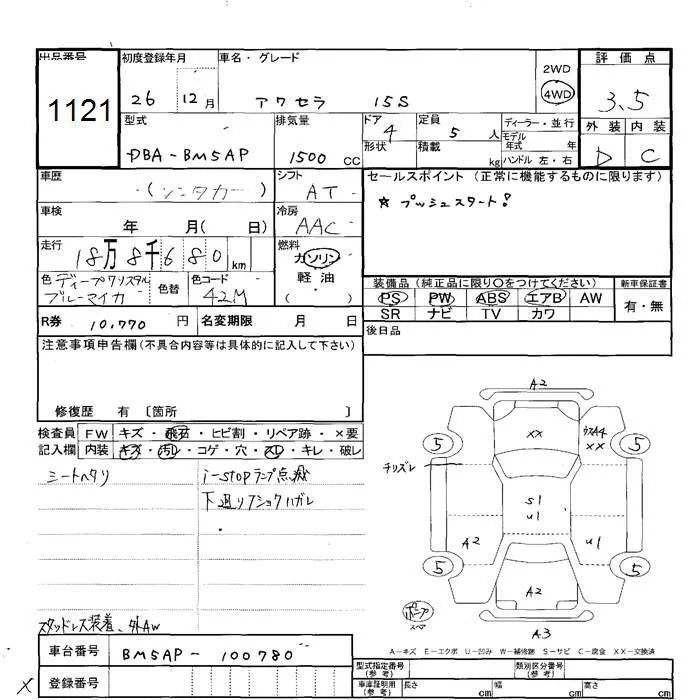 出品番号
1121
初度登録年月
26 12月
車名・グレード
アクセラ 15S
2WD
4WD
評価点
3.5
外装 内装
D C
型式
DBA-BM5AP
排気量
1500 CC
ドア
4
形状
定員
5 人
積載
kg
ディーラー・並行
モデル年式 年
ハンドル 左・右
車歴
(レンタカー)
シフト
AT
車検
年 月( 日)
冷房
AAC
走行
18万8千680km
燃料
ガソリン
軽油
( )
色 ディープクリスタルブルーマイカ
色替
色コード
42M
R券 10,770 円
名変期限 月 日
セールスポイント(正常に機能するものに限ります)
☆プッシュスタート!
装備品(純正品に限り○をつけてください)
新車保証書
PS PW ABS エアB AW
SR ナビ TV カワ
有・無
後日品
注意事項申告欄(不具合内容等は具体的に記入して下さい)
修復歴 有 〔箇所 〕
検査員記入欄
FW キズ・飛石・ヒビ割・リペア跡・×要
内装 キズ・汚レ・コゲ・穴・スレ・キレ・破レ
シートヘタリ
i-stopランプ点滅
下廻リフショクハガレ
スタッドレス装着、外AW
A2
XX
A4
XX
5
5
チリズレ
S1
U1
A2
U1
5
5
A2
A3
スペア
A-キズ E-エクボ U-凹み W-補修跡 S-サビ C-腐食 XX-交換済
車台番号 BM5AP-100780
登録番号
X
型式指定番号(参考)
類別区分番号(参考)
車庫証明用(参考) 長さ cm 幅 cm 高さ cm